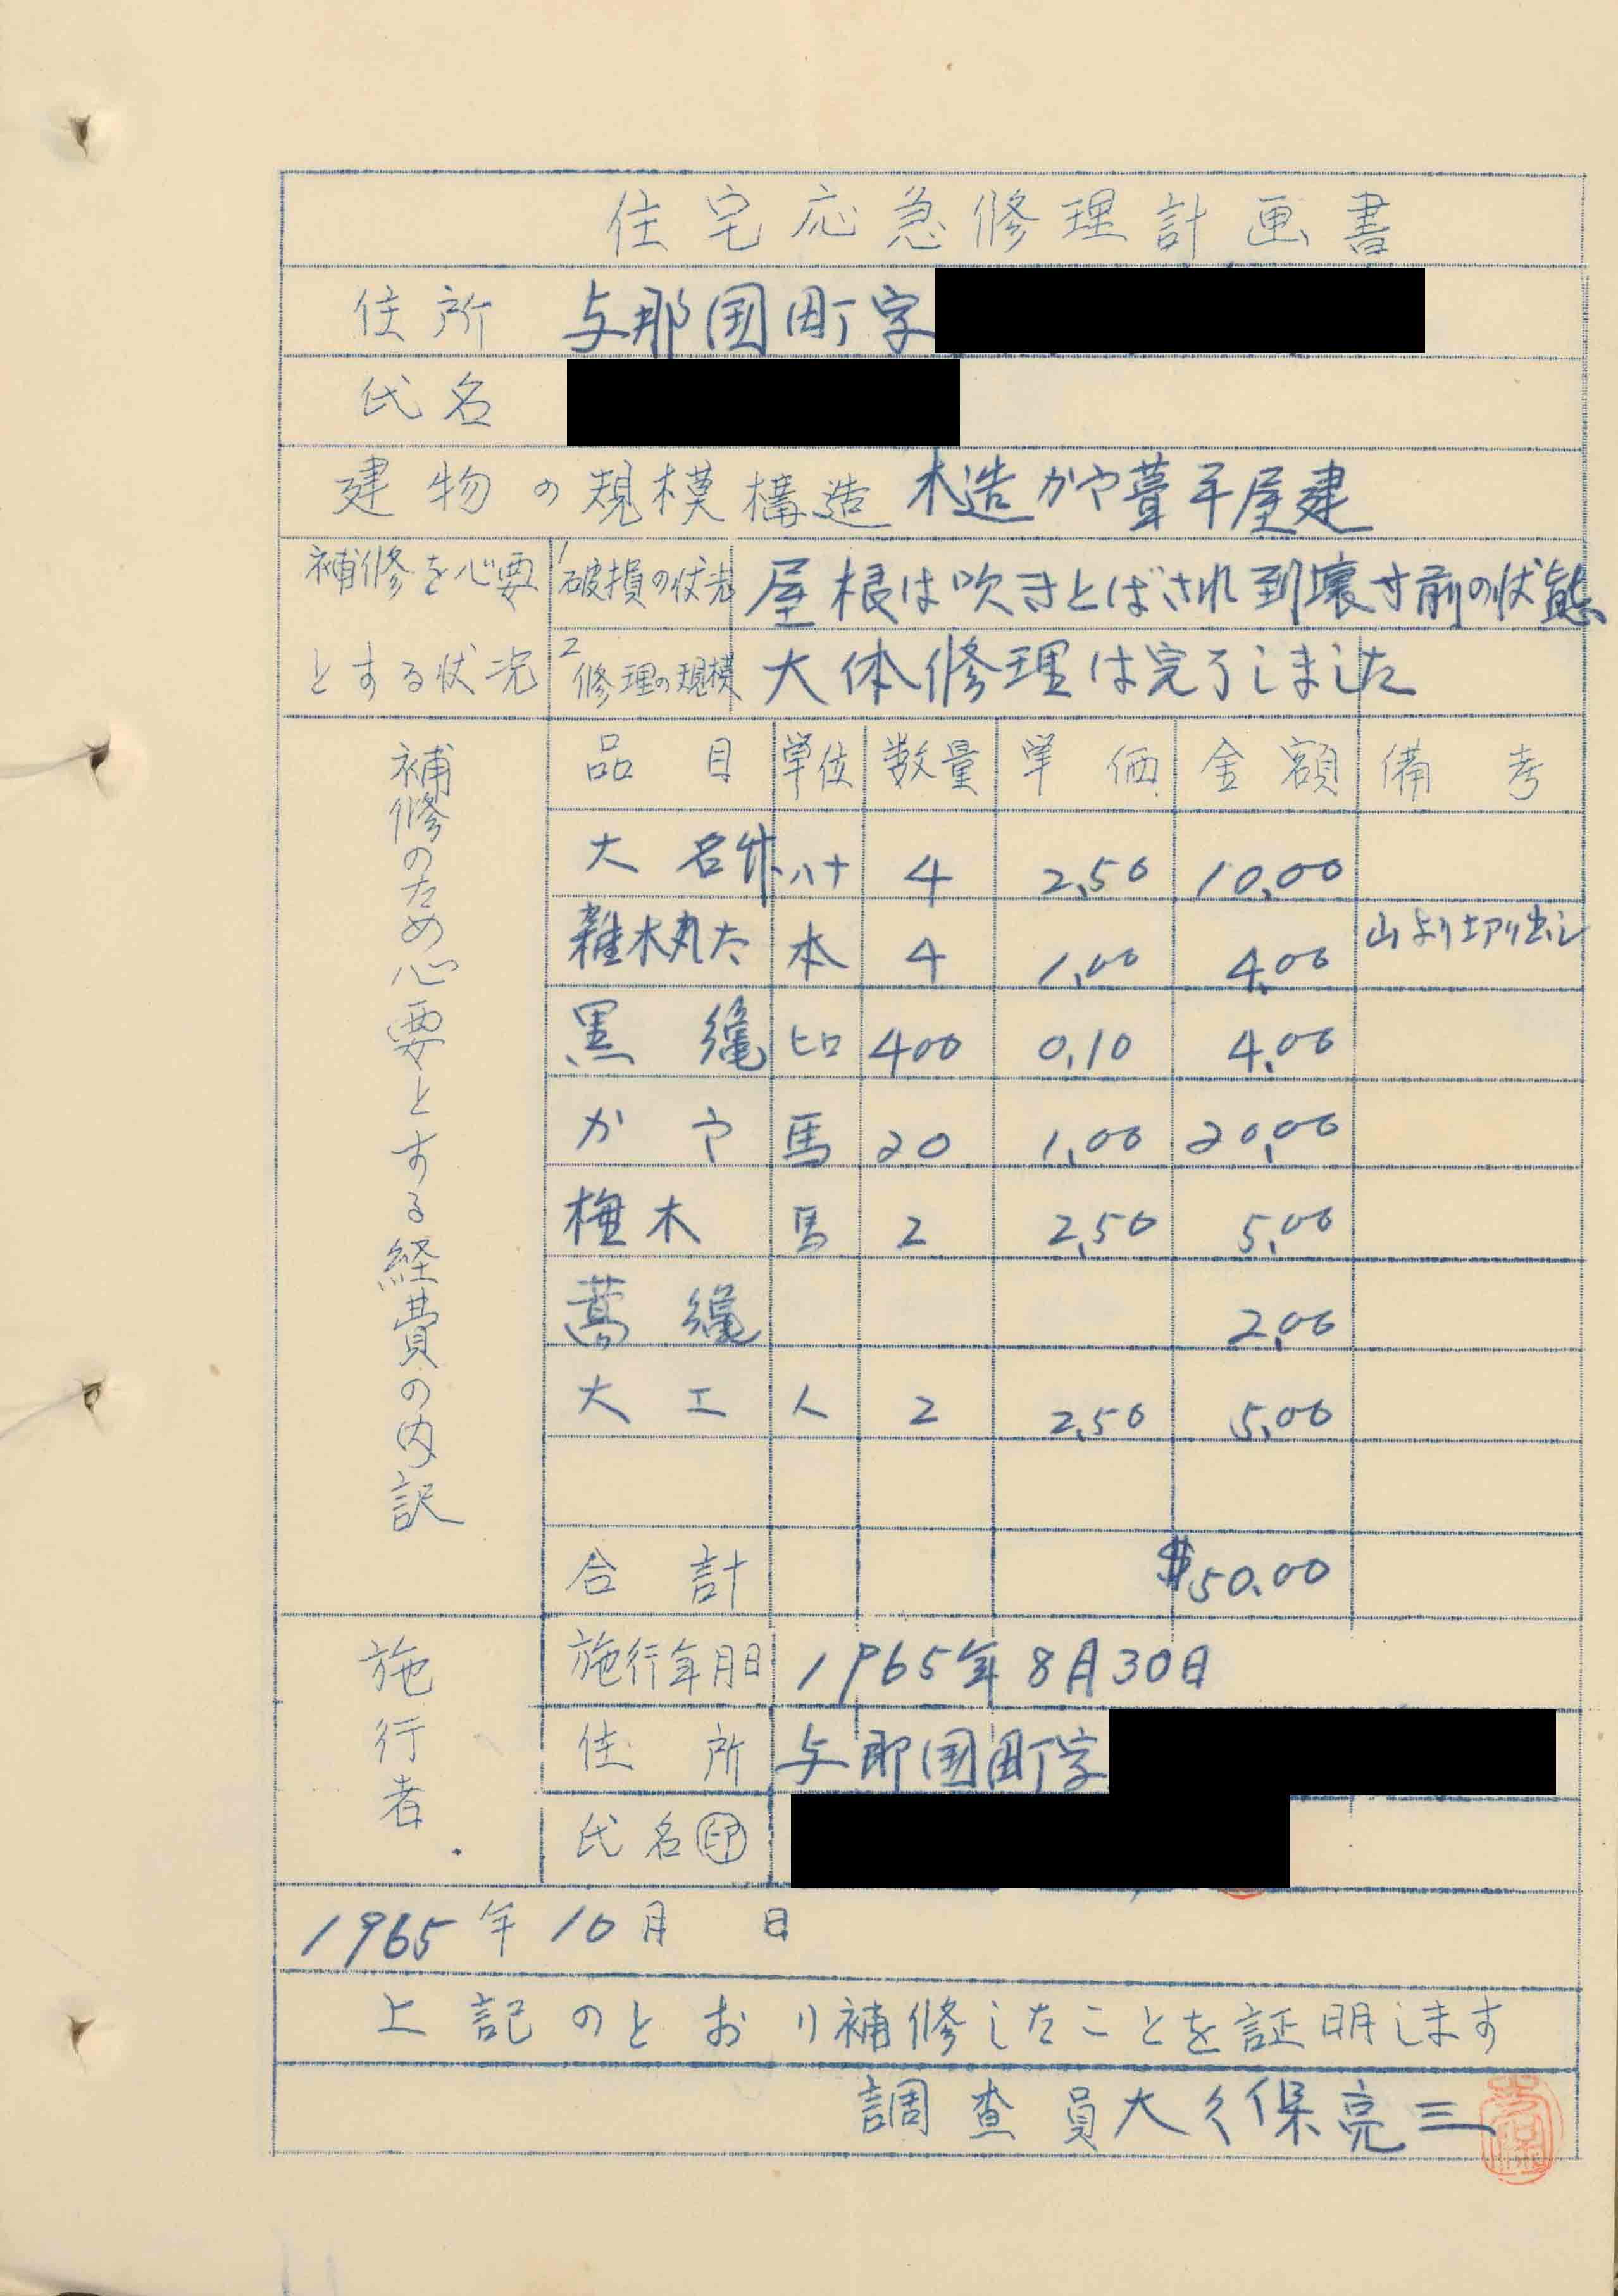 住宅応急修理計画書
住所 与那国町字
氏名
建物の規模構造 木造かや葺平屋建
補修を必要とする状況
1 破損の状況 屋根は吹きとばされ到壊寸前の状態
2 修理の規模 大体修理は完了しました
補修のため必要とする経費の内訳
品目 単位 数量 単価 金額 備考
大名竹 4 2,50 10,00
雑木丸太 本 4 1,00 4,00 山より切り出し
黒縄 ヒロ 400 0,10 4,00
かや 馬 20 1,00 20,00
木 馬 2 2,50 5,00
縄 2,00
大工 人 2 2,50 5,00
合計 $50.00
施行者
施行年月日 1965年8月30日
住所 与那国町字
氏名 印
1965年10月 日
上記のとおり補修したことを証明します
調査員 大久保亮三